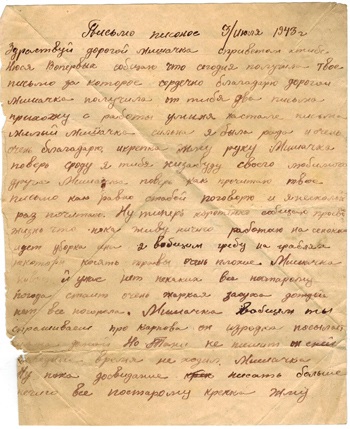 Письмо писаное 9/июля 1943 г
Здраствуй дорогой Мишачка с приветом к тибе
Люся Вопервые собщаю что сегодня получила твое
письмо за которое сердечно благодарю дорогой
Мишачка получила от тибя два письма
прихожу с работы у меня письма
милый Мишачка сильно я была рада и очень
очень благодарю крепко жму руку Мишачка
поверь буду я тибя незабуду своего любимого
друга Мишачка поверь как прочитаю твое
письмо как ровно с тобой поговорю и
раз почитаю. Ну теперь коротенько собщаю про свою
жизню что пока живу ничего работаю на сенокосе
идет уборка я вобщим гребу на граблях
некоторы косять травы очень плохие Мишачка
нет никакия все постарому
погода стоит очень жаркая засуха дождей
нет все погорело. Мишачка вобщем ты
спрашиваеш про он изредка посылает
Но Таня не пишит он
время не ходил. Мишачка
Ну пока досвидание писать больше
нечего все постарому крепко жму